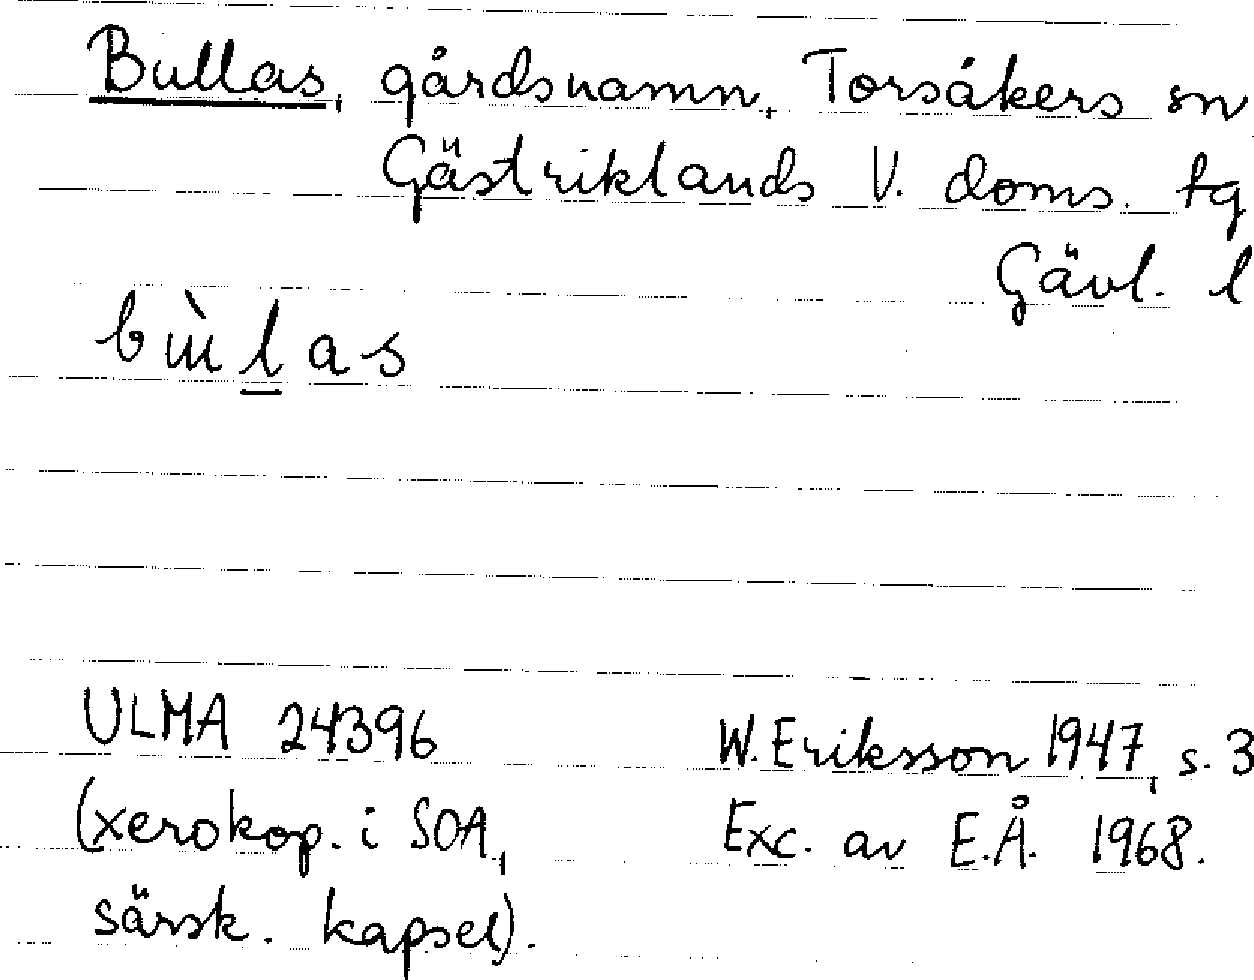 Bullas, gårdsnamn, Torsåkers sn
Gästriklands V. doms. tg
Gävl. l
bùl̲as
ULMA 24396
(xerokop. i SOA,
särsk. kapsel).
W. Eriksson 1947, s. 3
Exc. av E.Å. 1968.